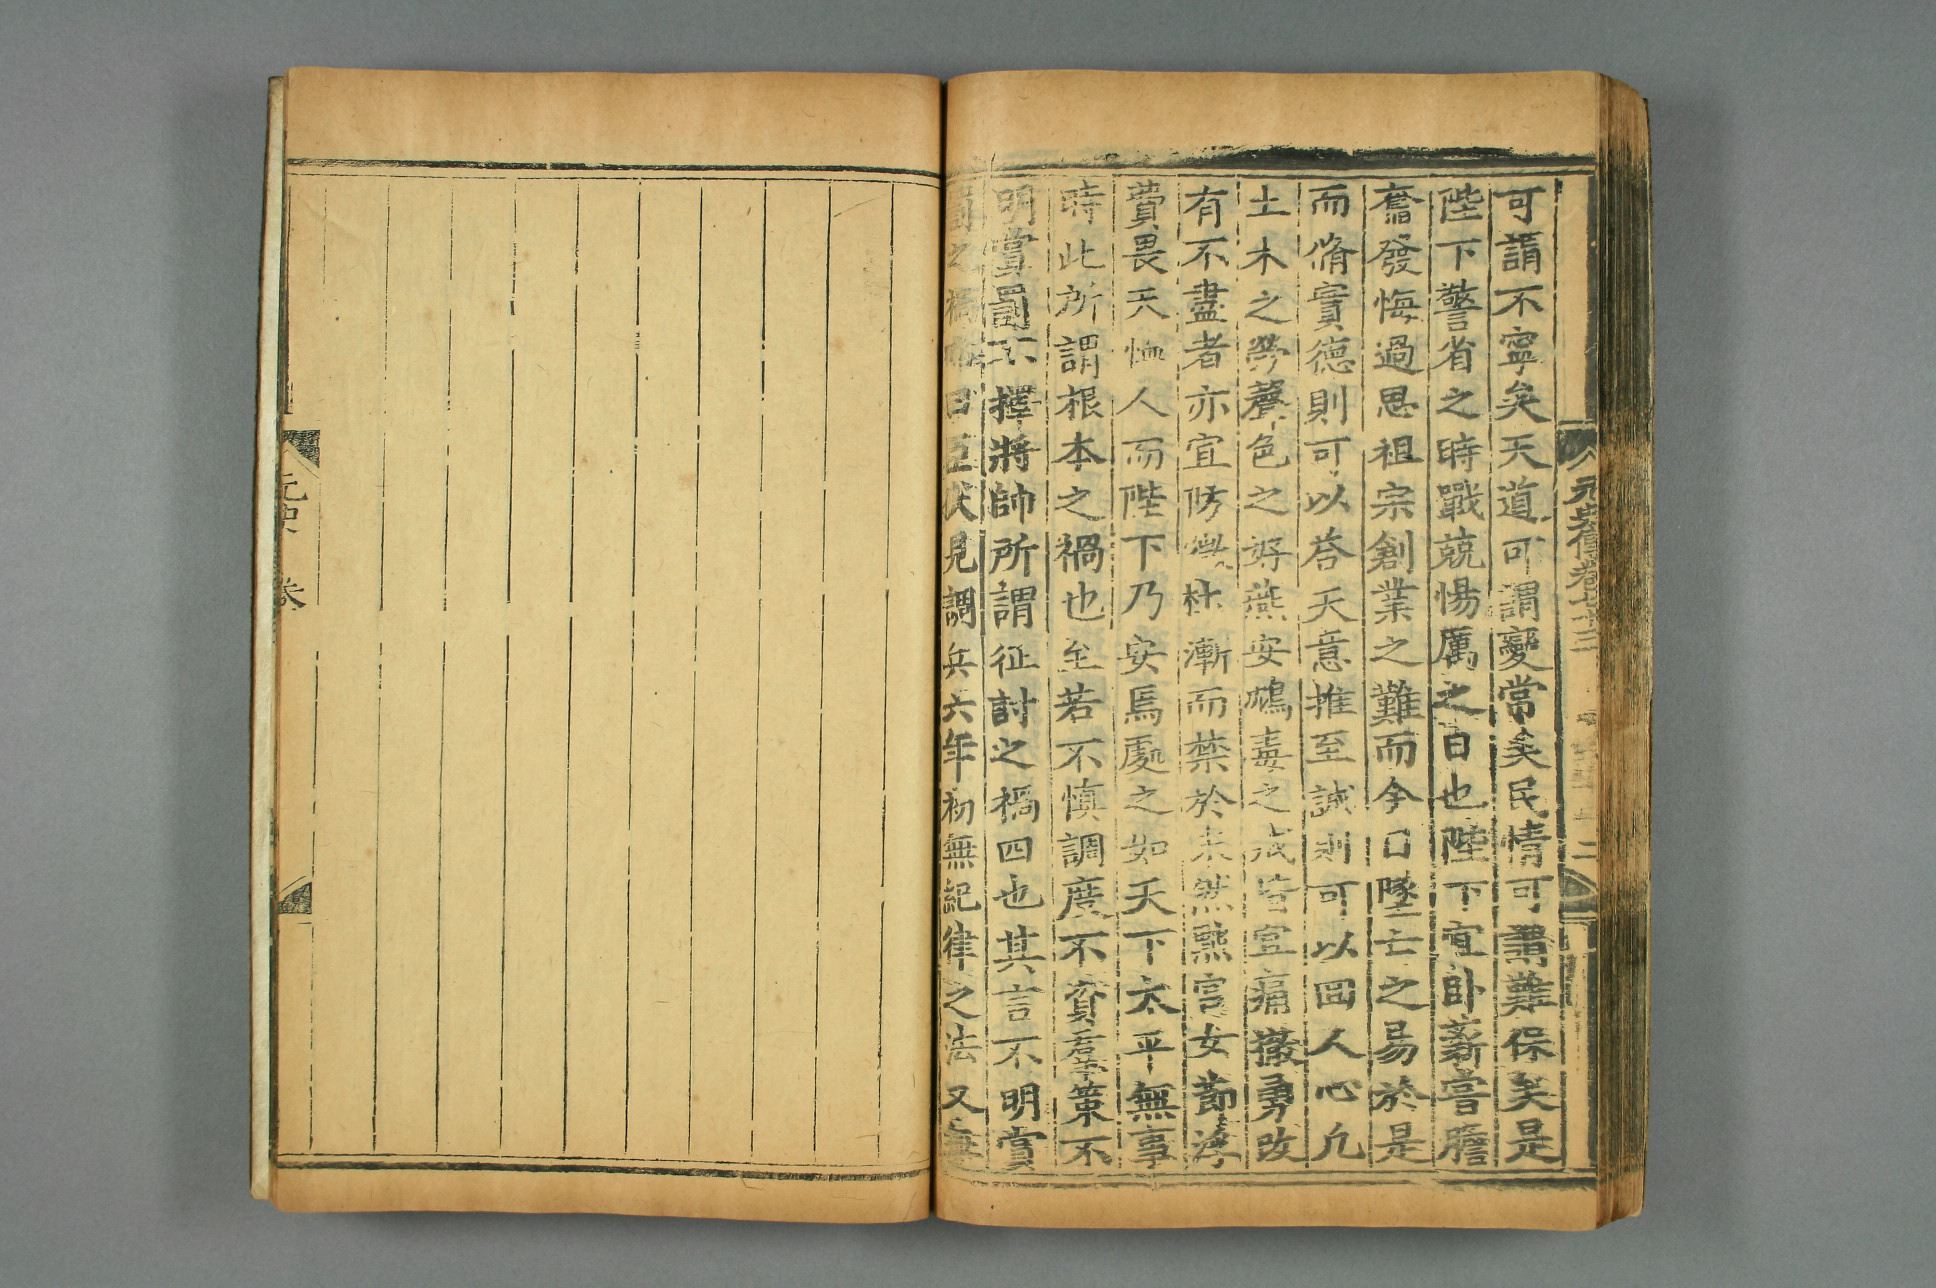 可謂不寧矣天道可謂變常矣民情可謂難保矣是
陛下警省之時戰兢惕厲之日也陛下宜卧薪嘗膽
奮發悔過思祖宗創業之難而今日墜亡之易於是
而脩實德則可以荅天意推至誠則可以回人心凡
土木之勞聲色之好燕安鴆毒之戒皆宜痛撤勇改
有不盡者亦宜防微杜漸而禁於未然黜宮女節浮
費畏天恤人而陛下乃安焉處之如天下太平無事
時此所謂根本之禍也至若不慎調度不資羣策不
明賞罰不擇將帥所謂征討之禍四也其言不明賞
罰之禍 曰臣伏見調兵六年初無紀律之法又無
元史傳卷七十三
二
元史 卷